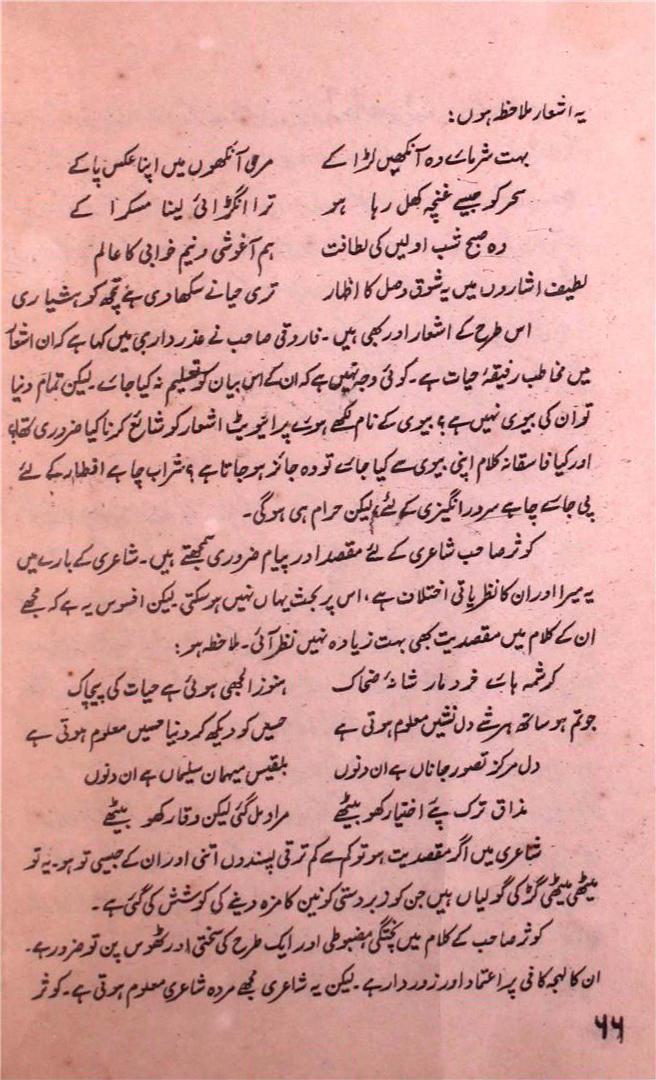 یہ اشعار ملاحظہ ہوں:
بہت شرمائے وہ آنکھیں لڑا کے مری آنکھوں میں اپنا عکس پا کے
سحر کو جیسے غنچہ کھل رہا ہو ترا انگڑائی لینا مسکرا کے
وہ صبح شب اولیں کی لطافت ہم آغوشی و نیم خوابی کا عالم
لطیف اشاروں میں یہ شوق وصل کا اظہار تری حیا نے سکھا دی ہے تجھ کو ہشیاری
اس طرح کے اشعار اور بھی ہیں۔ فاروقی صاحب نے عذرداری میں کہا ہے کہ ان اشعار
میں مخاطب رفیقۂ حیات ہے۔ کوئی وجہ نہیں ہے کہ ان کے اس بیان کو تسلیم نہ کیا جائے۔ لیکن تمام دنیا
تو ان کی بیوی نہیں ہے؟ بیوی کے نام لکھے ہوئے پرائیویٹ اشعار کو شائع کرنا کیا ضروری تھا؟
اور کیا فاسقانہ کلام اپنی بیوی سے کیا جائے تو وہ جائز ہو جاتا ہے؟ شراب چاہے افطار کے لئے
پی جائے چاہے سرور انگیزی کے لئے، لیکن حرام ہی ہوگی۔
کوثر صاحب شاعری کے لئے مقصد اور پیام ضروری سمجھتے ہیں۔ شاعری کے بارے میں
یہ میرا اور ان کا نظریاتی اختلاف ہے، اس پر بحث یہاں نہیں ہو سکتی لیکن افسوس یہ ہے کہ مجھے
ان کے کلام میں مقصدیت بھی بہت زیادہ نہیں نظر آئی۔ ملاحظہ ہو:
کرشمہ ہائے خرد مار شانۂ ضحاک ہنوز الجھی ہوئی ہے حیات کی پیچاک
جو تم ہو ساتھ ہر شے دل نشیں معلوم ہوتی ہے حسیں کو دیکھ کر دنیا حسیں معلوم ہوتی ہے
دل مرکز تصور جاناں ہے ان دنوں بلقیس میہمان سلیماں ہے ان دنوں
مذاق ترک پئے اختیار کھو بیٹھے مراد مل گئی لیکن وقار کھو بیٹھے
شاعری میں اگر مقصدیت ہو تو کم سے کم ترقی پسندوں اتنی اور ان کے جیسی تو ہو۔ یہ تو
میٹھی میٹھی گڑ کی گولیاں ہیں جن کو زبردستی کونین کا مزہ دینے کی کوشش کی گئی ہے۔
کوثر صاحب کے کلام میں پختگی مضبوطی اور ایک طرح کی سختی اور ٹھوس پن تو ضرور ہے۔
ان کا لہجہ کافی پر اعتماد اور زوردار ہے۔ لیکن یہ شاعری مجھے مردہ شاعری معلوم ہوتی ہے۔ کوثر
۶۶